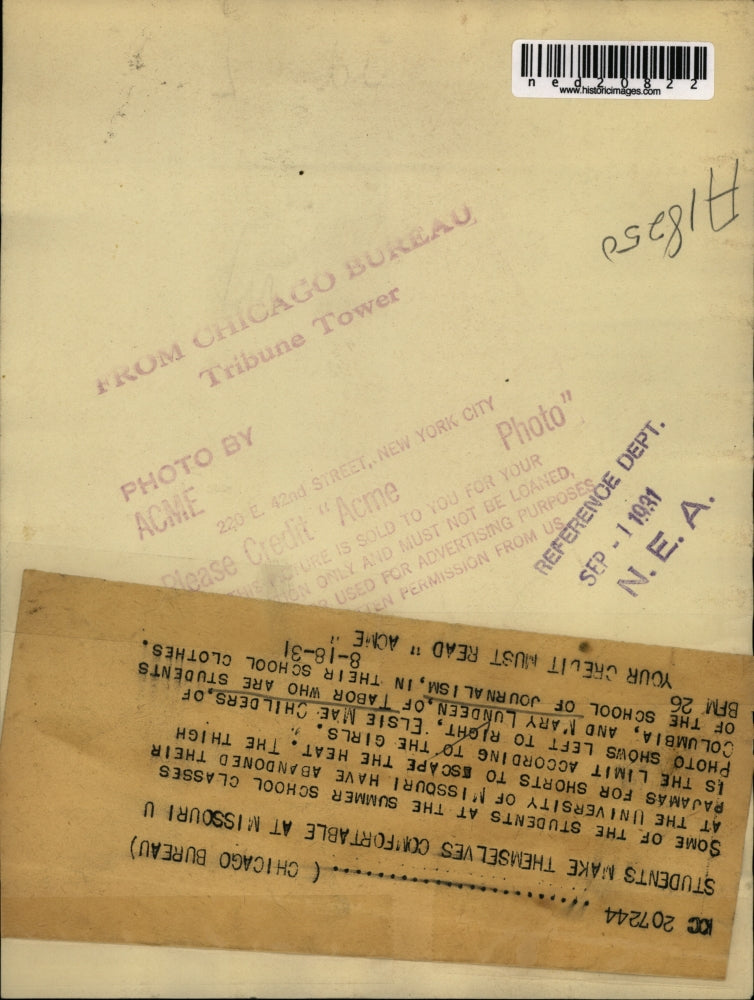 ned20822
www.historicimages.com
A18250
FROM CHICAGO BUREAU
Tribune Tower
PHOTO BY
ACME
220 E. 42nd STREET, NEW YORK CITY
Please Credit "Acme Photo"
PICTURE IS SOLD TO YOU FOR YOUR
ONLY AND MUST NOT BE LOANED,
USED FOR ADVERTISING PURPOSES
PERMISSION FROM US
REFERENCE DEPT.
SEP - 1 1931
N. E. A.
KC 207244
(CHICAGO BUREAU)
STUDENTS MAKE THEMSELVES COMFORTABLE AT MISSOURI U
SOME OF THE STUDENTS AT THE SUMMER SCHOOL CLASSES
AT THE UNIVERSITY OF MISSOURI HAVE ABANDONED THEIR
PAJAMAS FOR SHORTS TO ESCAPE THE HEAT. THE THIGH
IS THE LIMIT ACCORDING TO THE GIRLS.
PHOTO SHOWS LEFT TO RIGHT, ELSIE MAE CHILDERS, OF
COLUMBIA, AND MARY LUNDEEN, OF TABOR WHO ARE STUDENTS
OF THE SCHOOL OF JOURNALISM, IN THEIR SCHOOL CLOTHES.
BFM 26 8-18-31
YOUR CREDIT MUST READ " ACME "